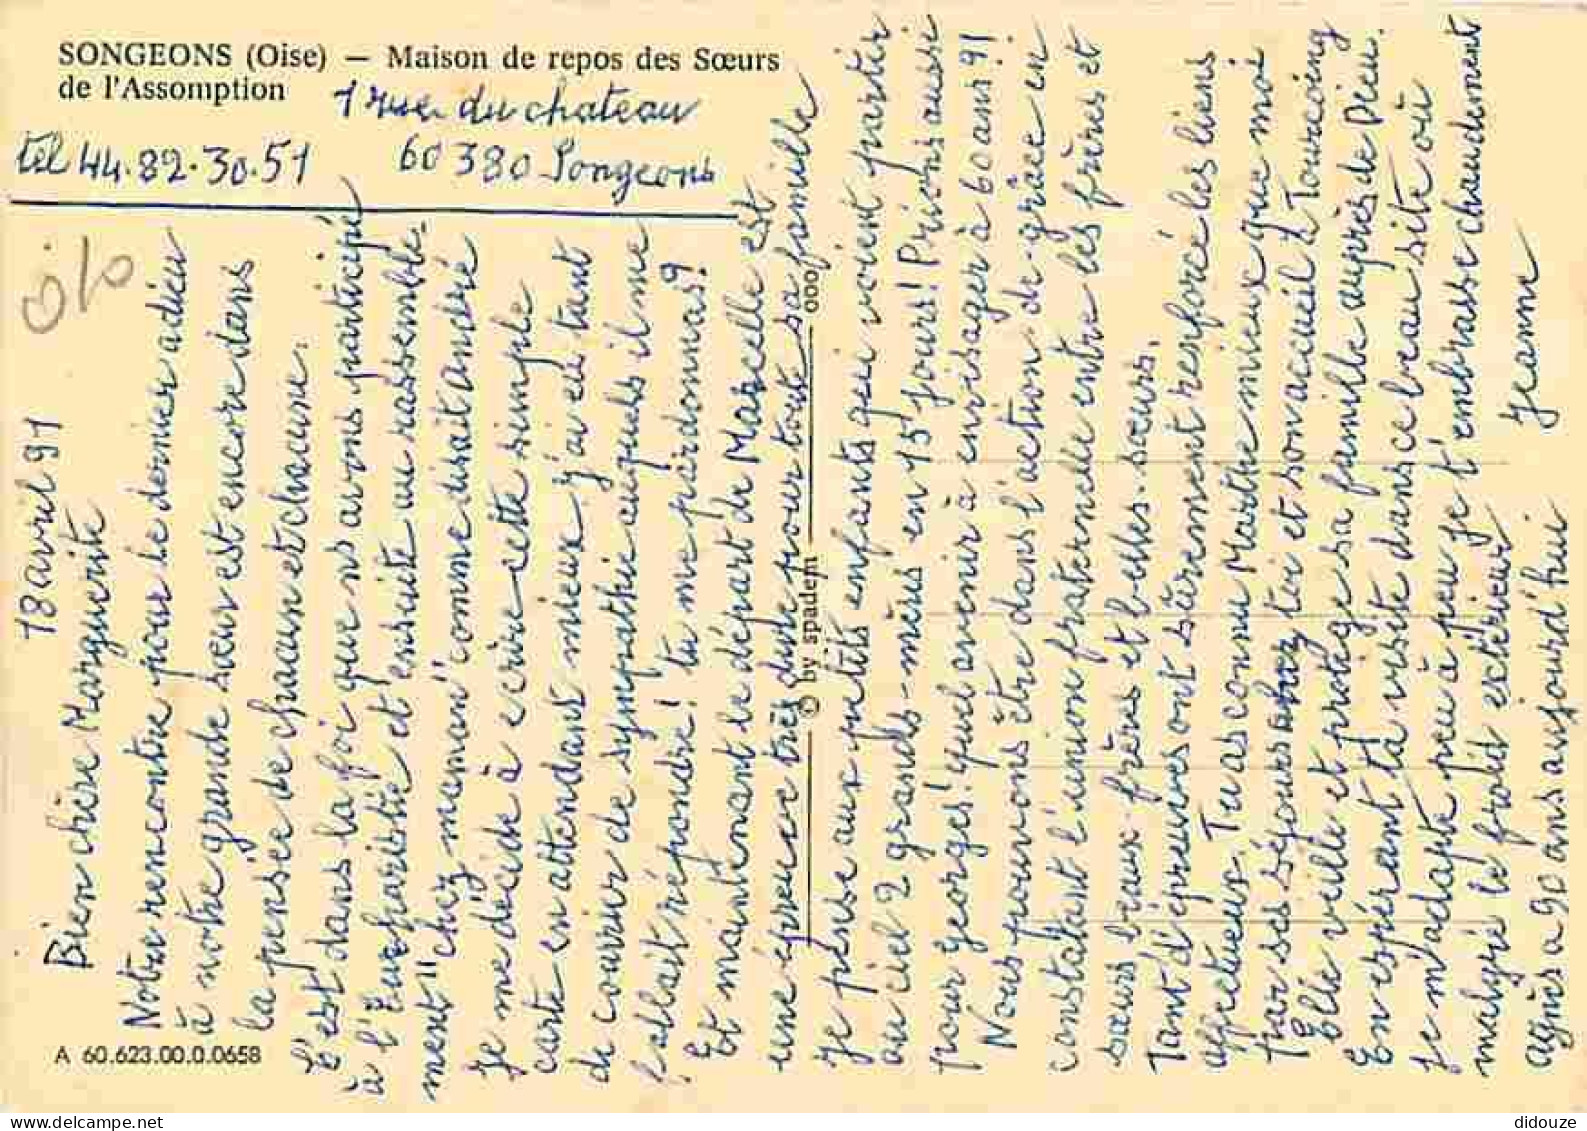 SONGEONS (Oise) — Maison de repos des Sœurs
de l'Assomption
1 rue du chateau
tél 44.82.30.51 60380 Songeons
18 avril 91
Bien chère Marguerite
Notre rencontre pour le dernier adieu
à notre grande sœur est encore dans
la pensée de chacun et chacune.
C'est dans la foi que ns avons participé
à l'Eucharistie et ensuite au rassemble-
ment "chez maman" comme disait André
Je me décide à écrire cette simple
carte en attendant mieux j'ai eu tant
de courrier de sympathie auquels il me
fallait répondre! tu me pardonnas?
Et maintenant le départ de Marcelle est
une épreuve très dure pour toute sa famille
Je pense aux petits enfants qui voient partir
au ciel 2 grands-mères en 15 jours! Prions aussi
pour Georges! quel avenir à envisager à 60 ans 9!
Nous pouvons être dans l'action de-grâce en
constatant l'union fraternelle entre les frères et
sœurs beaux-frères et belles-sœurs.
Tant d'épreuves ont sûrement renforcé les liens
affectueux. Tu as connu Marthe mieux que moi
par ses séjours chez toi et son accueil à Tourcoing
Elle veille et protège sa famille auprès de Dieu.
En espérant ta visite dans ce beau site où
je m'adapte peu à peu je t'embrasse chaudement
malgré le froid extérieur
Jeanne
agnès a 90 ans aujourd'hui
© by spadem
A 60.623.00.0.0658
delcampe.net
didouze